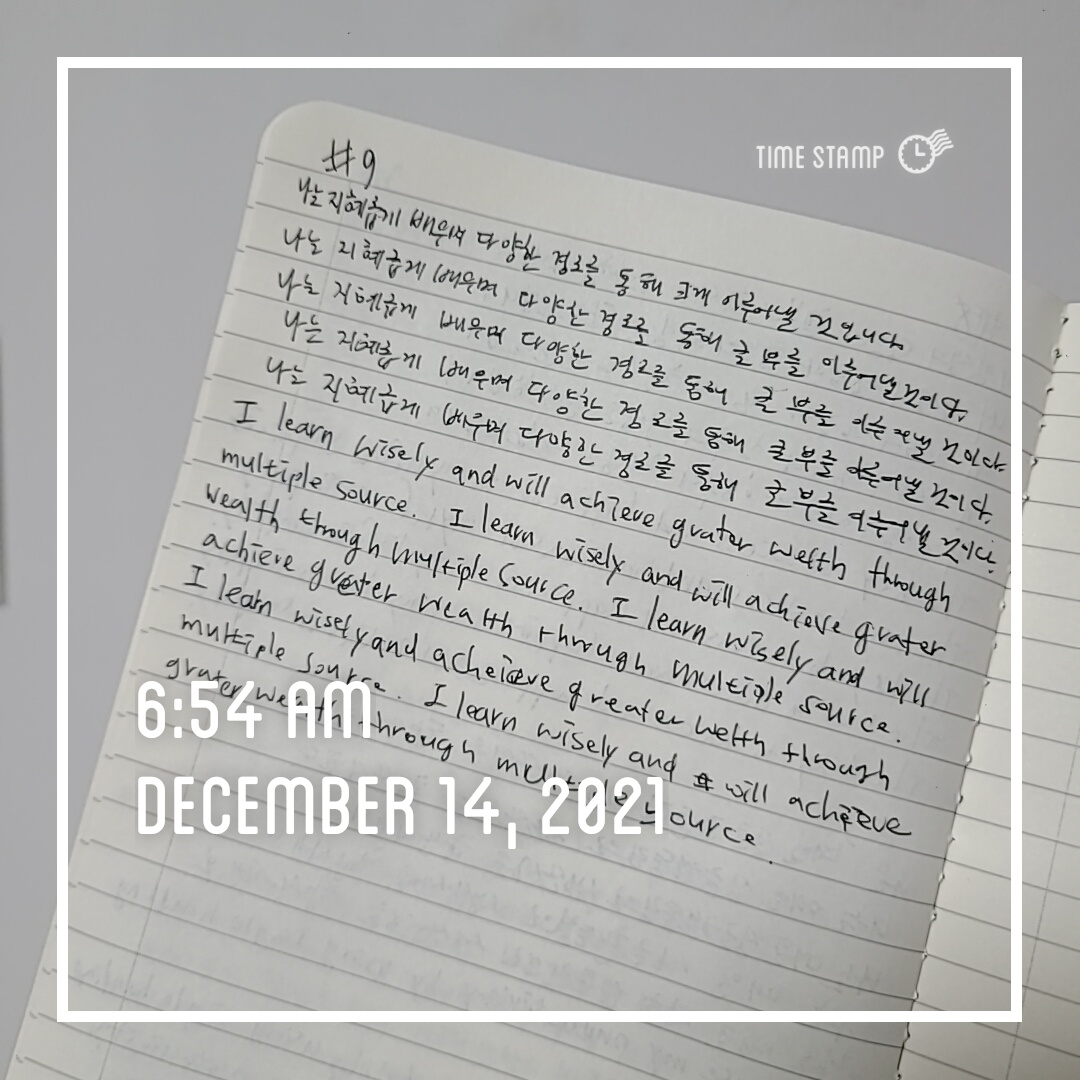 TIME STAMP
#9
나는 지혜롭게 배우며 다양한 경로를 통해 크게 이루어낼 것입니다.
나는 지혜롭게 배우며 다양한 경로로 통해 큰 부를 이루어낼 것이다.
나는 지혜롭게 배우며 다양한 경로를 통해 큰 부를 이루어낼 것이다.
나는 지혜롭게 배우며 다양한 경로를 통해 큰 부를 이루어낼 것이다.
나는 지혜롭게 배우며 다양한 경로를 통해 큰 부를 이루어낼 것이다.
I learn wisely and will achieve grater welth through
multiple source. I learn wisely and will achieve grater
wealth through multiple source. I learn wisely and will
achieve greater wealth through multiple source.
I learn wisely and acheieve greater welth through
multiple source. I learn wisely and will achieve
grater wealth through multiple source.
6:54 AM
DECEMBER 14, 2021